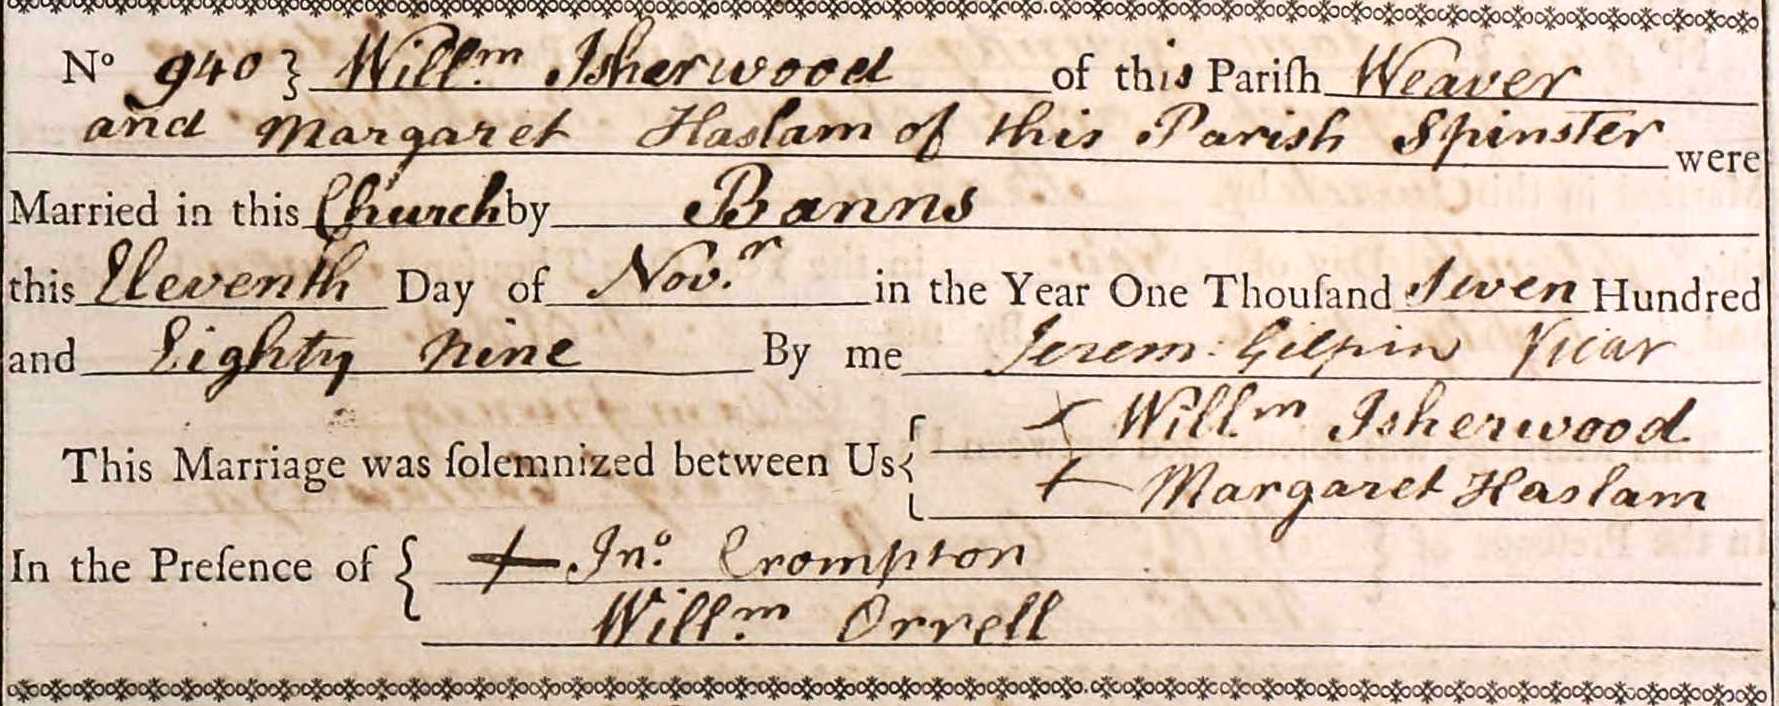 Nº 940 } Willm Isherwood of this Pariſh Weaver
and Margaret Haslam of this Parish Spinster were
Married in this Church by Banns
this Eleventh Day of Nov.r in the Year One Thouſand Seven Hundred
and Eighty Nine By me Jerem: Gilpin Vicar
This Marriage was ſolemnized between Us { × Willm Isherwood
+ Margaret Haslam
In the Preſence of { + Jnº. Crompton
Willm Orrell